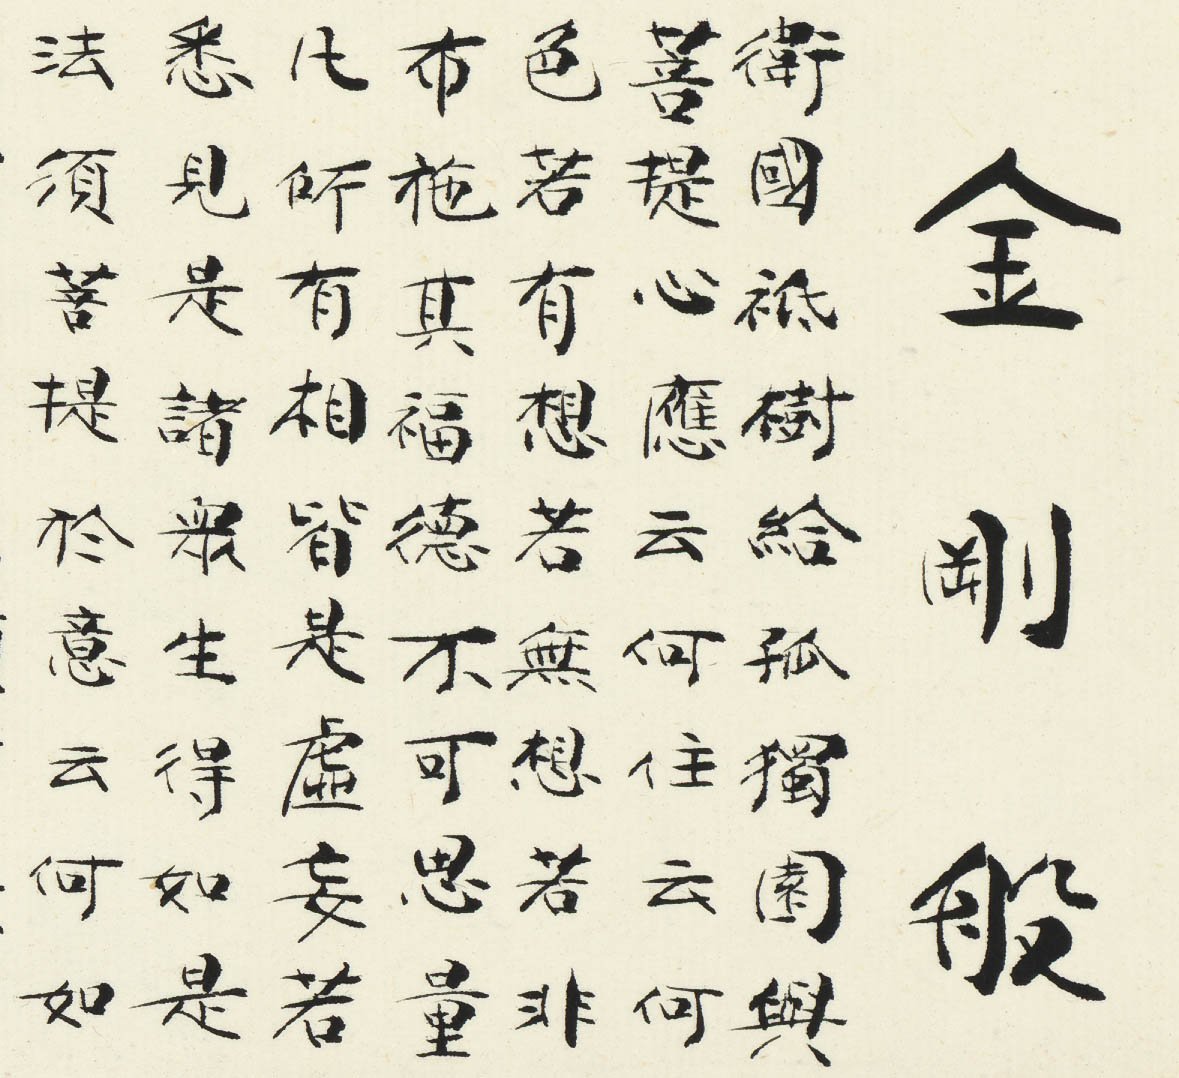 金剛般
衛國祇樹給孤獨園與
菩提心應云何住云何
色若有想若無想若非
布施其福德不可思量
凡所有相皆是虛妄若
悉見是諸眾生得如是
法須菩提於意云何如